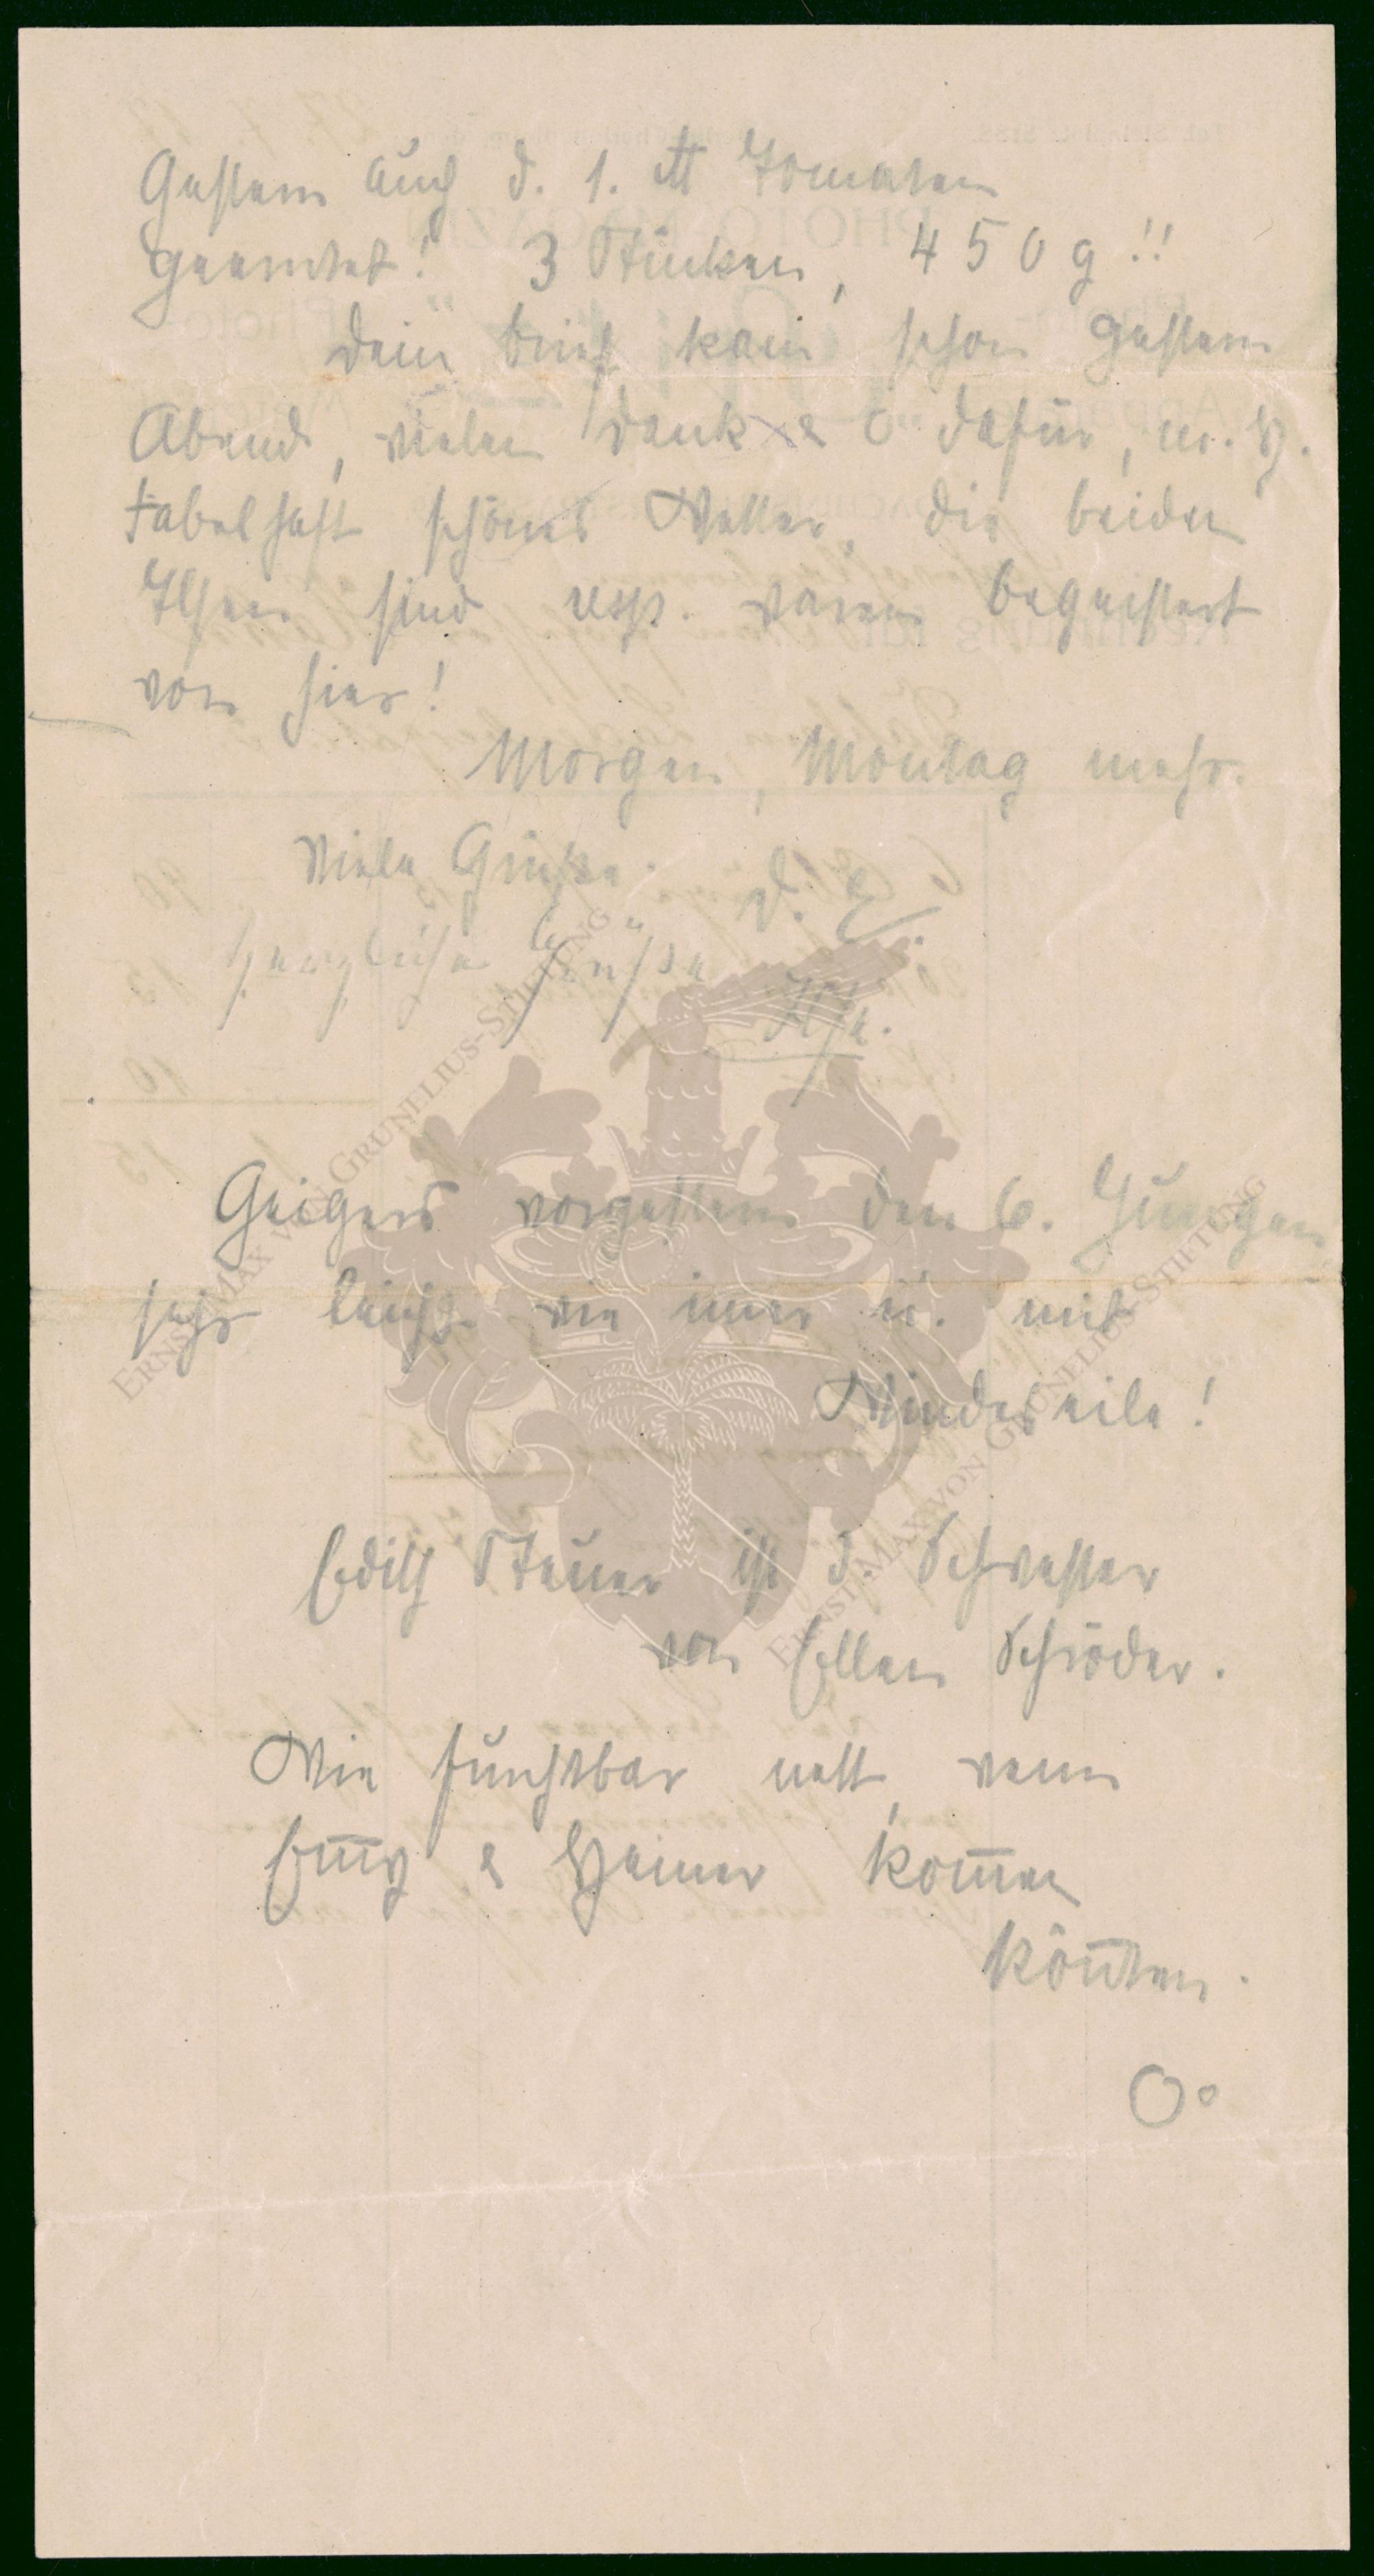 Gestern auch d. 1. ℔ Tomaten
geerntet! 3 Stücken, 450 g!!
Dein Brief kam schon gestern
Abend, vielen Dank & O dafür, m. H.
Fabelhaft schönes Wetter, die beiden
Ilsen sind resp. waren begeistert
von hier!
Morgen, Montag mehr.
Viele Grüsse. D. E.
Herzliche Grüße Ilse.
Geigers vorgestern den 6. Jungen
sehr leicht wie immer u. mit
Windeseile!
Edith Steuer ist d. Schwester
von Ellen Schröder.
Wie furchtbar nett, wenn
Em̅y & Heiner kom̅en
kön̅ten.
O°
ERNST MAX VON GRUNELIUS-STIFTUNG
ERNST MAX VON GRUNELIUS-STIFTUNG